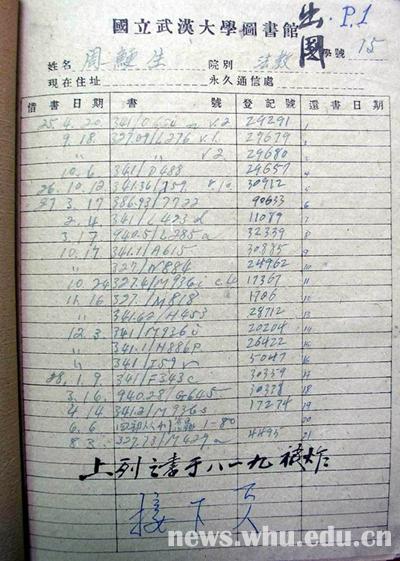 國立武漢大學圖書館 出國 P.1
姓名 周鯁生 院別 法教 學號 15
現在住址 永久通信處
借書日期 書號 登記號 還書日期
25. 4. 20 v.2 29291 1
9. 18 327.09/L276 v.1. 29679 2
〃 〃 v.2 29680 3
10. 6 341/D488 29657 4
26. 10. 12 30912 5
27. 3. 17 386.93/7722 90633 6
2. 4. 341/L423d 11089 7
3. 17. 940.5/L285a 32339 8
10. 17 341.1/A615 30885 9
〃 327/W884 24962 10
10. 24 327.4/M936i 17367 11
11. 16 327./M818 1706 12
〃 341.62/H453 29712 13
12. 3. 341/M936s 20204 14
〃 341.1/H886p 26422 15
〃 341/I59 5047 16
28. 1. 9. 341/F343c 30339 17
3. 16. 940.28/G645 30378 18
4. 14 341.2/M936s 17274 19
6. 6 1-80 20
8. 3. 327.73/M429a 4495 21
上列之書于八一九被炸
接下頁
news.whu.edu.cn